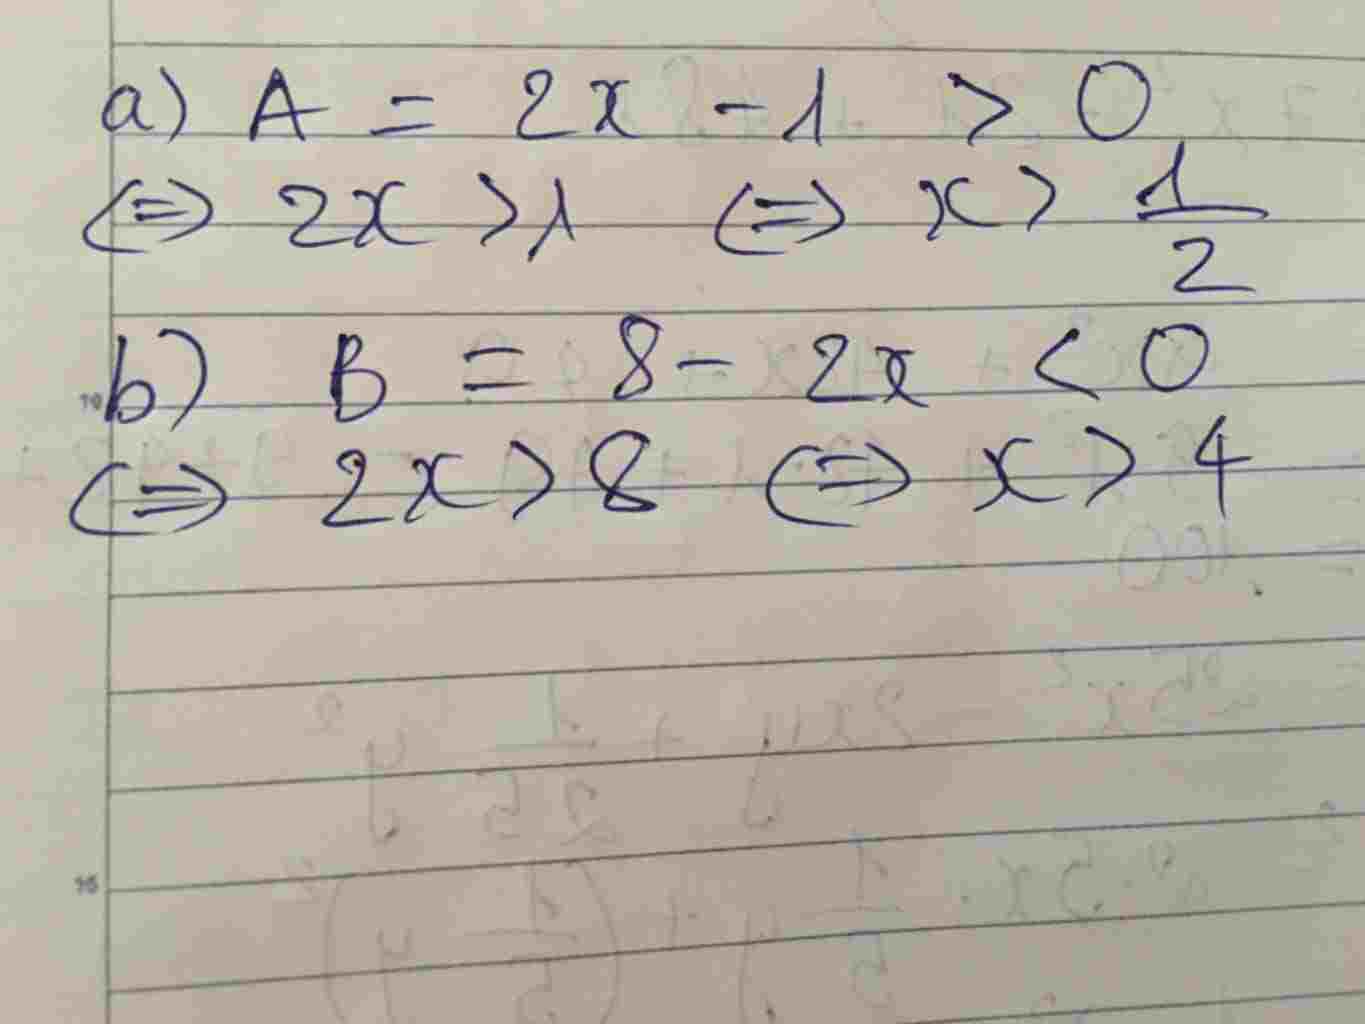 a) A = 2x - 1 > 0
<=> 2x > 1 <=> x > 1/2
b) B = 8 - 2x < 0
<=> 2x > 8 <=> x > 4